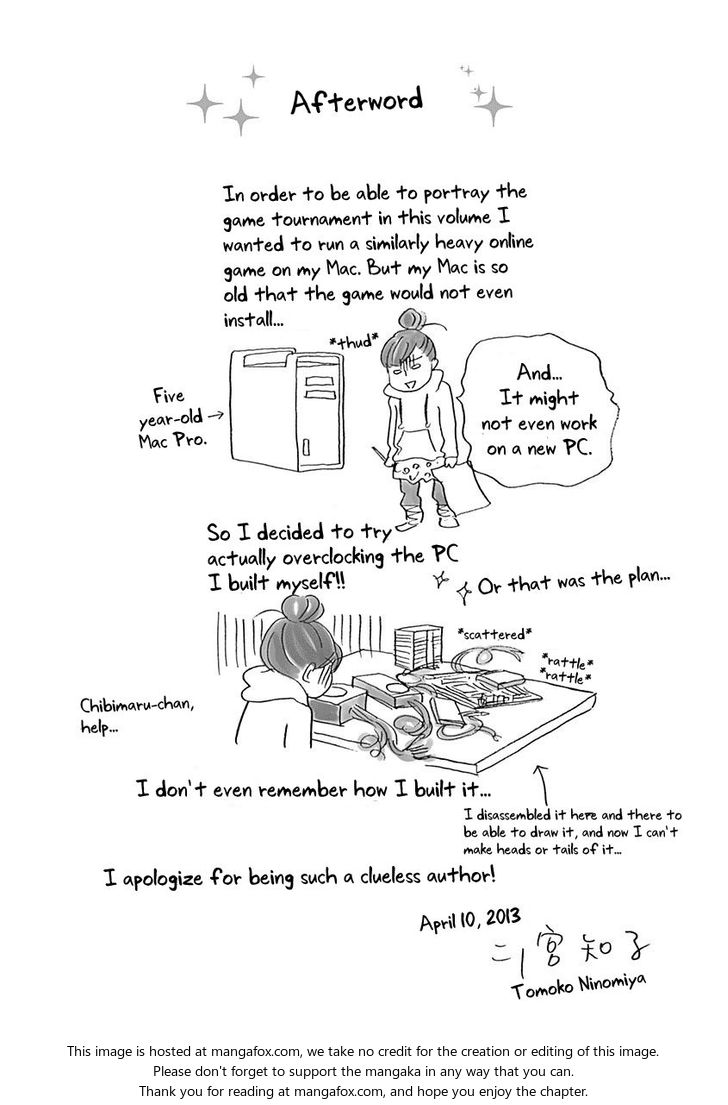 Afterword
In order to be able to portray the
game tournament in this volume I
wanted to run a similarly heavy online
game on my Mac. But my Mac is so
old that the game would not even
install...
*thud*
Five
year-old →
Mac Pro.
And...
It might
not even work
on a new PC.
So I decided to try
actually overclocking the PC
I built myself!!
Or that was the plan...
*scattered*
*rattle*
*rattle*
Chibimaru-chan,
help...
I don't even remember how I built it...
I disassembled it here and there to
be able to draw it, and now I can't
make heads or tails of it...
I apologize for being such a clueless author!
April 10, 2013
二ノ宮知子
Tomoko Ninomiya
This image is hosted at mangafox.com, we take no credit for the creation or editing of this image.
Please don't forget to support the mangaka in any way that you can.
Thank you for reading at mangafox.com, and hope you enjoy the chapter.